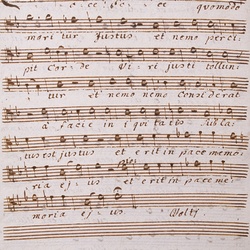 ecce quomodo
moritur Justus et nemo perci-
pit Corde Viri justi tollun-
tur et nemo nemo Considerat
a facie iniquitatis Subla-
tus est justus et erit in pace memo-
ria ejus et erit in pace me-
moria ejus Volti